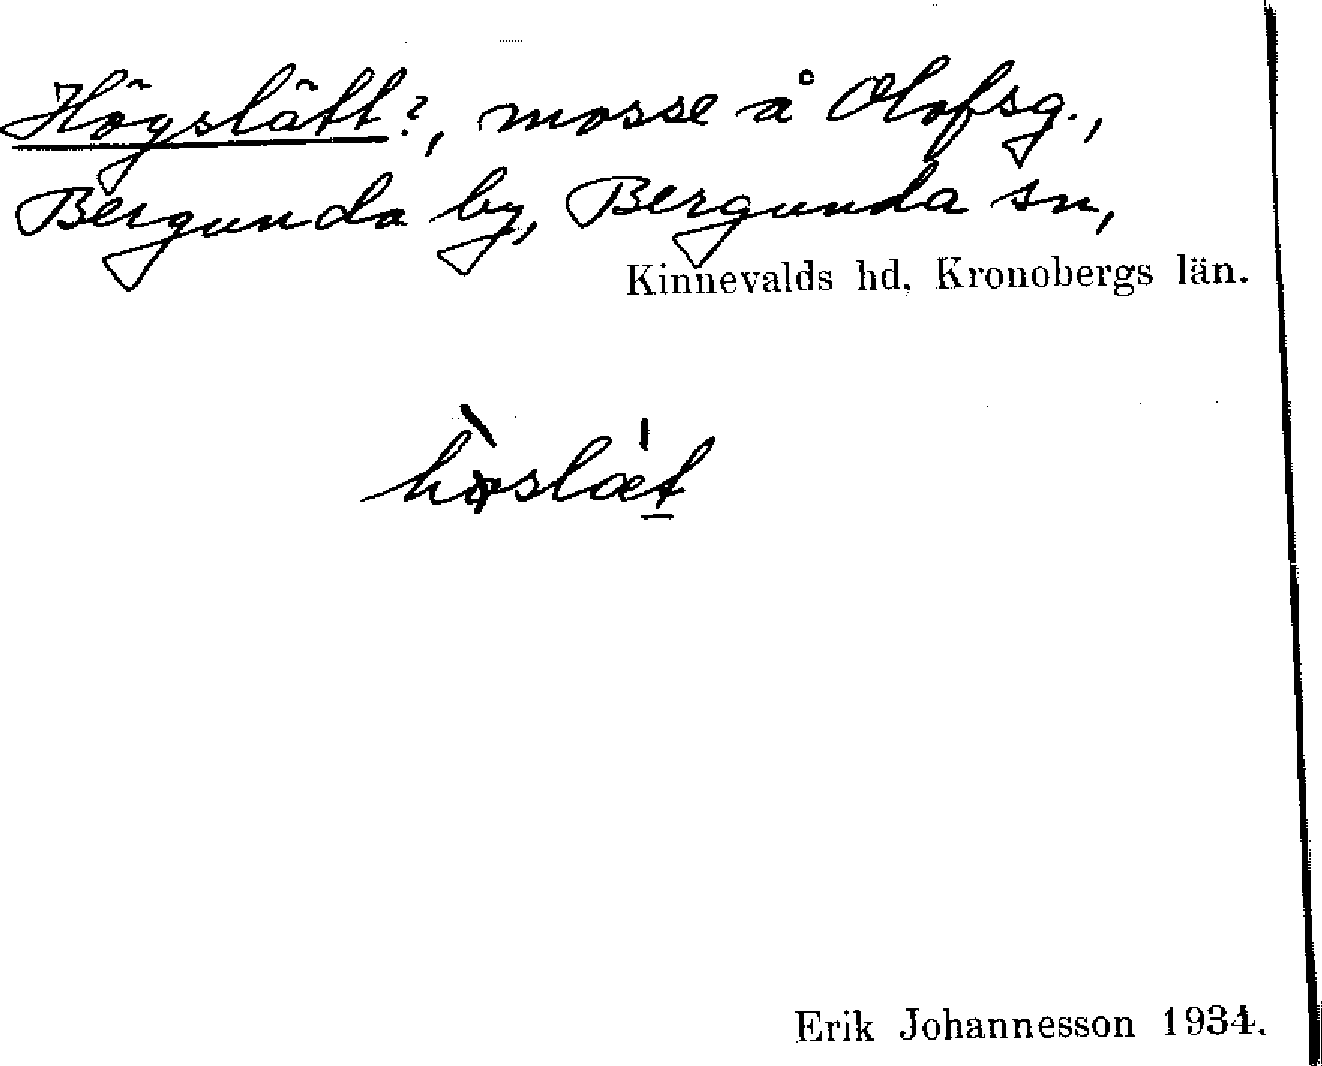 Högslätt?, mosse å Olofsg.,
Bergunda by, Bergunda sn,
Kinnevalds hd, Kronobergs län.
hø̀slæt
Erik Johannesson 1934.